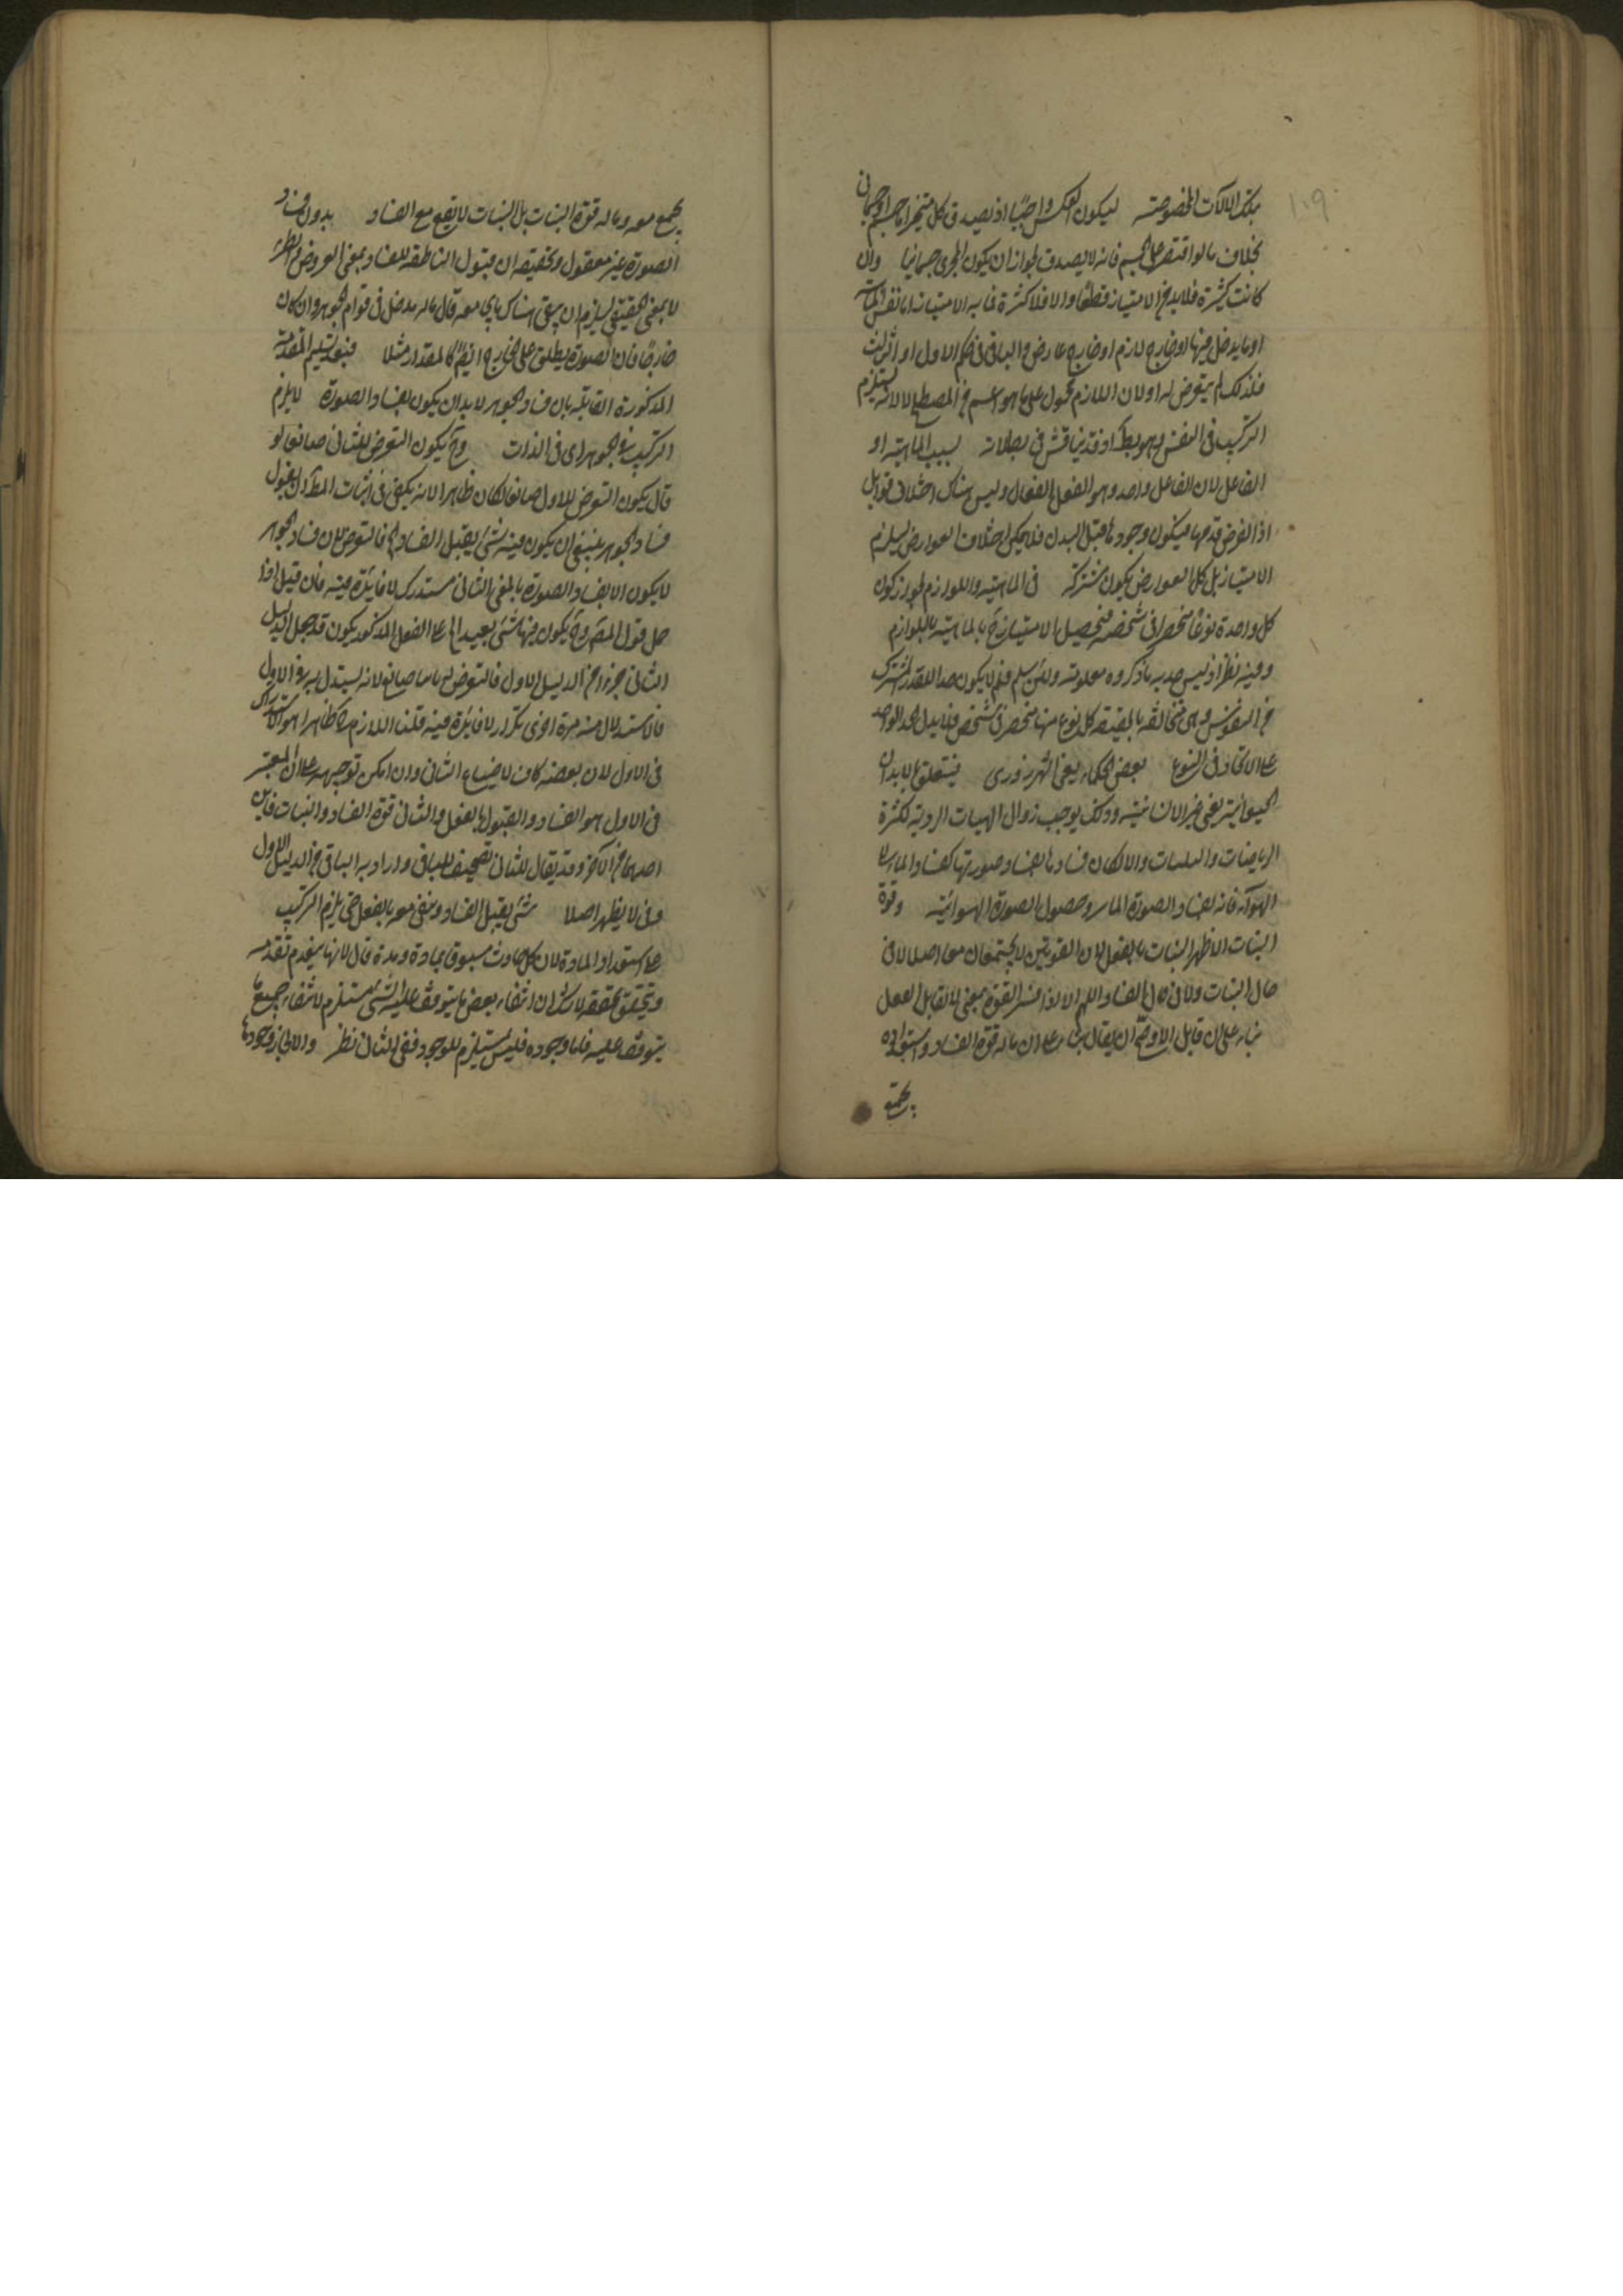 ١٠٩
بتلك الآلات المخصوصة ليكون العكس واضحًا اذ يصدق كل متحيز اما جسم او جسمانى
بخلاف ما لو اقتصر على الجسم فانه لا يصدق لجواز ان يكون المجرى جسمانيا وان
كانت كثيرة فلابد من الامتياز قطعًا والا فلا كثرة فما به الامتياز اما نفس الماهية
او ما يدخل فيها او خارج لازم او خارج عارض والباقى فى حكم الاول او الثالث
فلذلك لم يتعرض له اولان اللازم محمول على ما هو اعم من المصطلح لا لانه يستلزم
التركيب فى النفس وهو بط اذ قد يناقش فى بطلانه بسبب الماهية او
الفاعل لان الفاعل واحد وهو العقل الفعال وليس هناك اختلاف قوابل
اذ الفرض قدمها فيكون وجودها قبل البدن فلا يمكن اختلاف العوارض ليلزم
الامتياز بل كل العوارض يكون مشتركة فى الماهية واللوازم لجواز كون
كل واحدة نوعًا منحصرا فى شخصه فتحصيل الامتياز ح بالماهية باللوازم
وفيه نظر اذ ليس حد به ما ذكروه معلومة ولئن سلم فلم لا يكون حدا للقدر المشترك
من النفوس وهى متخالفة بالحقيقة كل نوع منها منحصر فى شخص فلا يدل الحد الواحد
على الاتحاد فى النوع بعض الحكماء يعنى الشهرزورى فيتعلق بالابدان
الحيوانية يعنى غير الانسانية وذلك يوجب زوال الهيات الردية لكثرة
الرياضات والبليات والا لكان فسادها بفساد صورتها كفساد الماء الى
الهواء فانه بفساد الصورة المائية وحصول الصورة الهوائية وقوة
الثبات الاظهر الثبات بالفعل لان القوتين لا يجتمعان معا اصلا لا فى
حال الثبات ولا فى حال الفساد اللهم الا اذا فسر القوة بمعنى لا تقابل الفعل
بناء على ان قابل الاوضح ان يقال بناء على ان ما له قوة الفساد واستعداده
يجتمع
يجتمع معه وما له قوة الثبات بل الثبات لا يبقى مع الفساد بدون فساد
الصورة غير معقول وتحقيقه ان قبول الناطقة للفساد بمعنى العروض والطريان
لا بمعنى الحقيقى ليلزم ان يبقى هناك باق معه قال ما له مدخل فى قوام الجوهر وان كان
خارجًا فان الصورة يطلق على الخارج ايضًا كالمقدار مثلا فبعد تسليم المقدمة
المذكورة القائلة بان فساد الجوهر لابد ان يكون بفساد الصورة لا يلزم
التركيب فى الجوهر اى فى الذات وح يكون التعرض للثانى ضائعا لو
قال يكون التعرض للاول ضائعا لكان ظاهرا لانه يكفى فى اثبات المط ان يقول
فساد الجوهر ينبغى ان يكون فيه شئ يقبل الفساد فالتعرض لان فساد الجوهر
لا يكون الا بفساد الصورة بالمعنى الثانى مستدرك لا فائدة فيه فان قيل اذا
حمل قول المص وح يكون فيها شئ بعيد الى على الفعل المذكور يكون قد جعل الدليل
الثانى جزءا من الدليل الاول فالتعرض له ما ما ضائع لانه يستدل به فى الاول
فالاستدلال منه مرة اخرى تكرار لا فائدة فيه قلنا اللازم ح ظاهرا هو الاستدراك
فى الاول لان بعضه كاف لا ضياع الثانى وان امكن توجيهه على ان المعتبر
فى الاول هو الفساد والقبول بالفعل والثانى قوة الفساد والثبات فاين
احدهما من الآخر وقد يقال للثانى تصحيف للباقى واراد به الباقى من الدليل الاول
وفى لا يظهر اصلا شئ يقبل الفساد ويبقى معه بالفعل حتى يلزم التركيب
على استعداد المادة لان كل حادث مسبوق بمادة ومدة قال لانها بتقدم تقدمه
ويتحقق تحققه لا شك ان انتفاء بعض ما يتوقف عليه الشئ مستلزم لانتفاء جميع ما
يتوقف عليه فاما وجوده فليس مستلزم للوجود ففى الثانى نظر والا لجاز وجودها